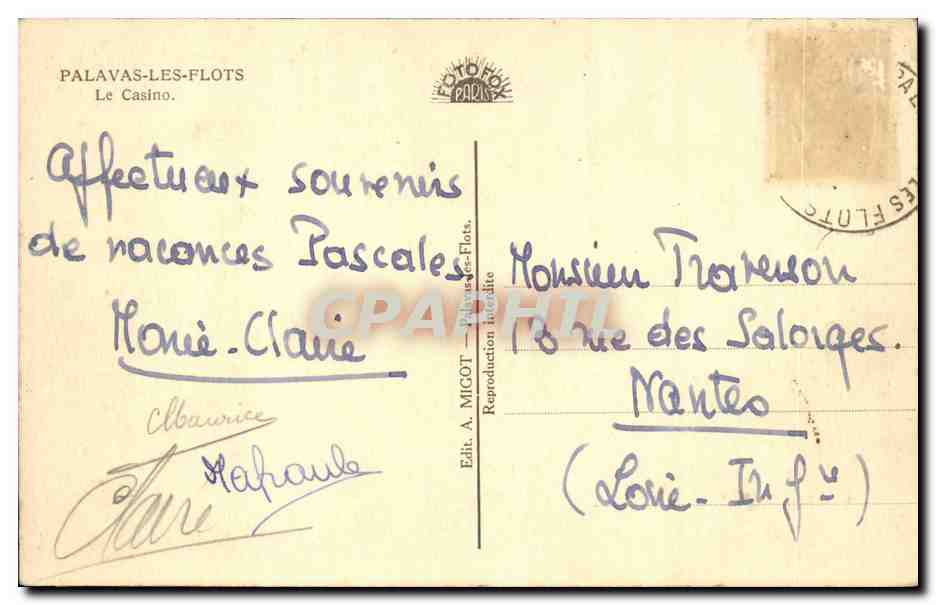 PALAVAS-LES-FLOTS
Le Casino.
FOTOFOX
PARIS
LES FLOTS
Affectueux souvenirs
de vacances Pascales
Marie-Claire
Maurice
Claire
Edit. A. MIGOT — Palavas-les-Flots.
Reproduction interdite
CPARHTL
Monsieur Traverson
rue des Salorges.
Nantes
(Loire-Infre)